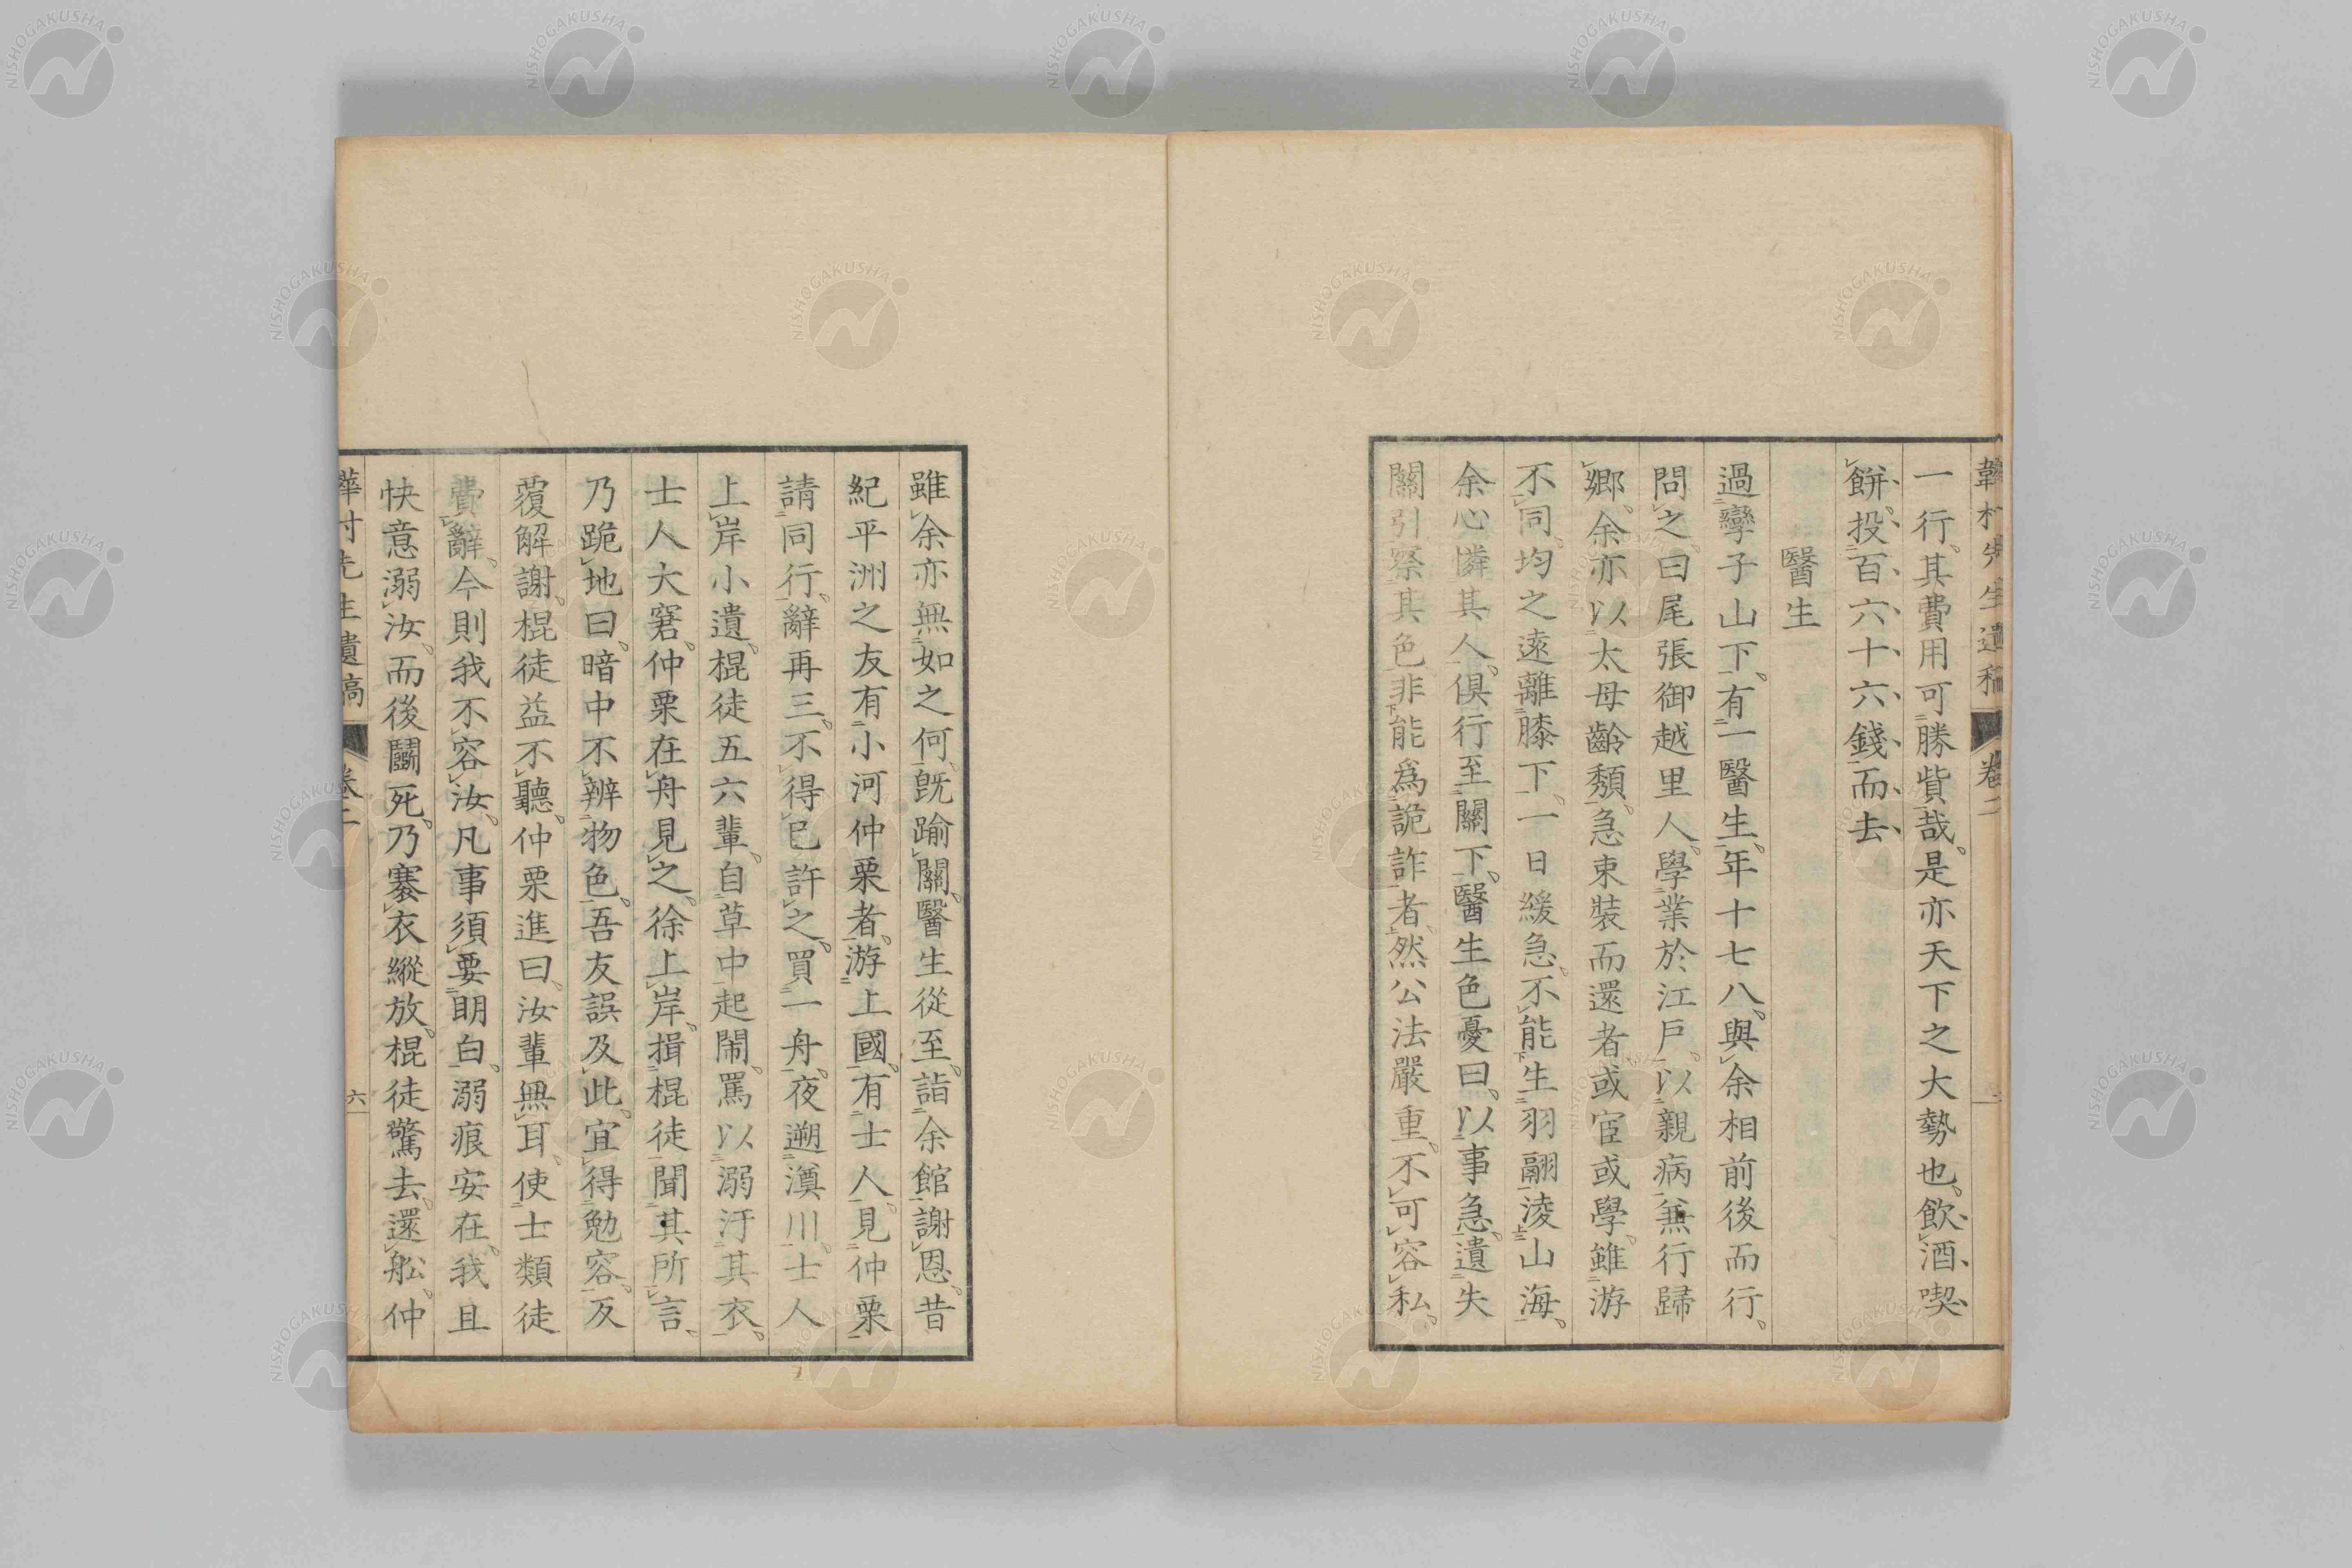 韡村先生遺稿 卷二
一行其費用可勝貲哉是亦天下之大勢也飲酒喫
餅投百六十六錢而去
醫生
過孿子山下有一醫生年十七八與余相前後而行
問之曰尾張御越里人學業於江戶以親病兼行歸
鄉余亦以太母齡頽急束裝而還者或宦或學雖游
不同均之遠離膝下一日緩急不能生羽翮淩山海
余心憐其人俱行至關下醫生色憂曰以事急遺失
關引察其色非能爲詭詐者然公法嚴重不可容私
雖余亦無如之何旣踰關醫生從至詣余館謝恩昔
紀平洲之友有小河仲栗者游上國有士人見仲栗
請同行辭再三不得已許之買一舟夜遡澱川士人
上岸小遺棍徒五六輩自草中起鬧罵以溺汙其衣
士人大窘仲栗在舟見之徐上岸揖棍徒聞其所言
乃跪地曰暗中不辨物色吾友誤及此宜得勉容反
覆解謝棍徒益不聽仲栗進曰汝輩無耳使士類徒
費辭今則我不容汝凡事須要明白溺痕安在我且
快意溺汝而後鬭死乃褰衣縱放棍徒驚去還船仲
韡村先生遺稿 卷二 六
NISHOGAKUSHA